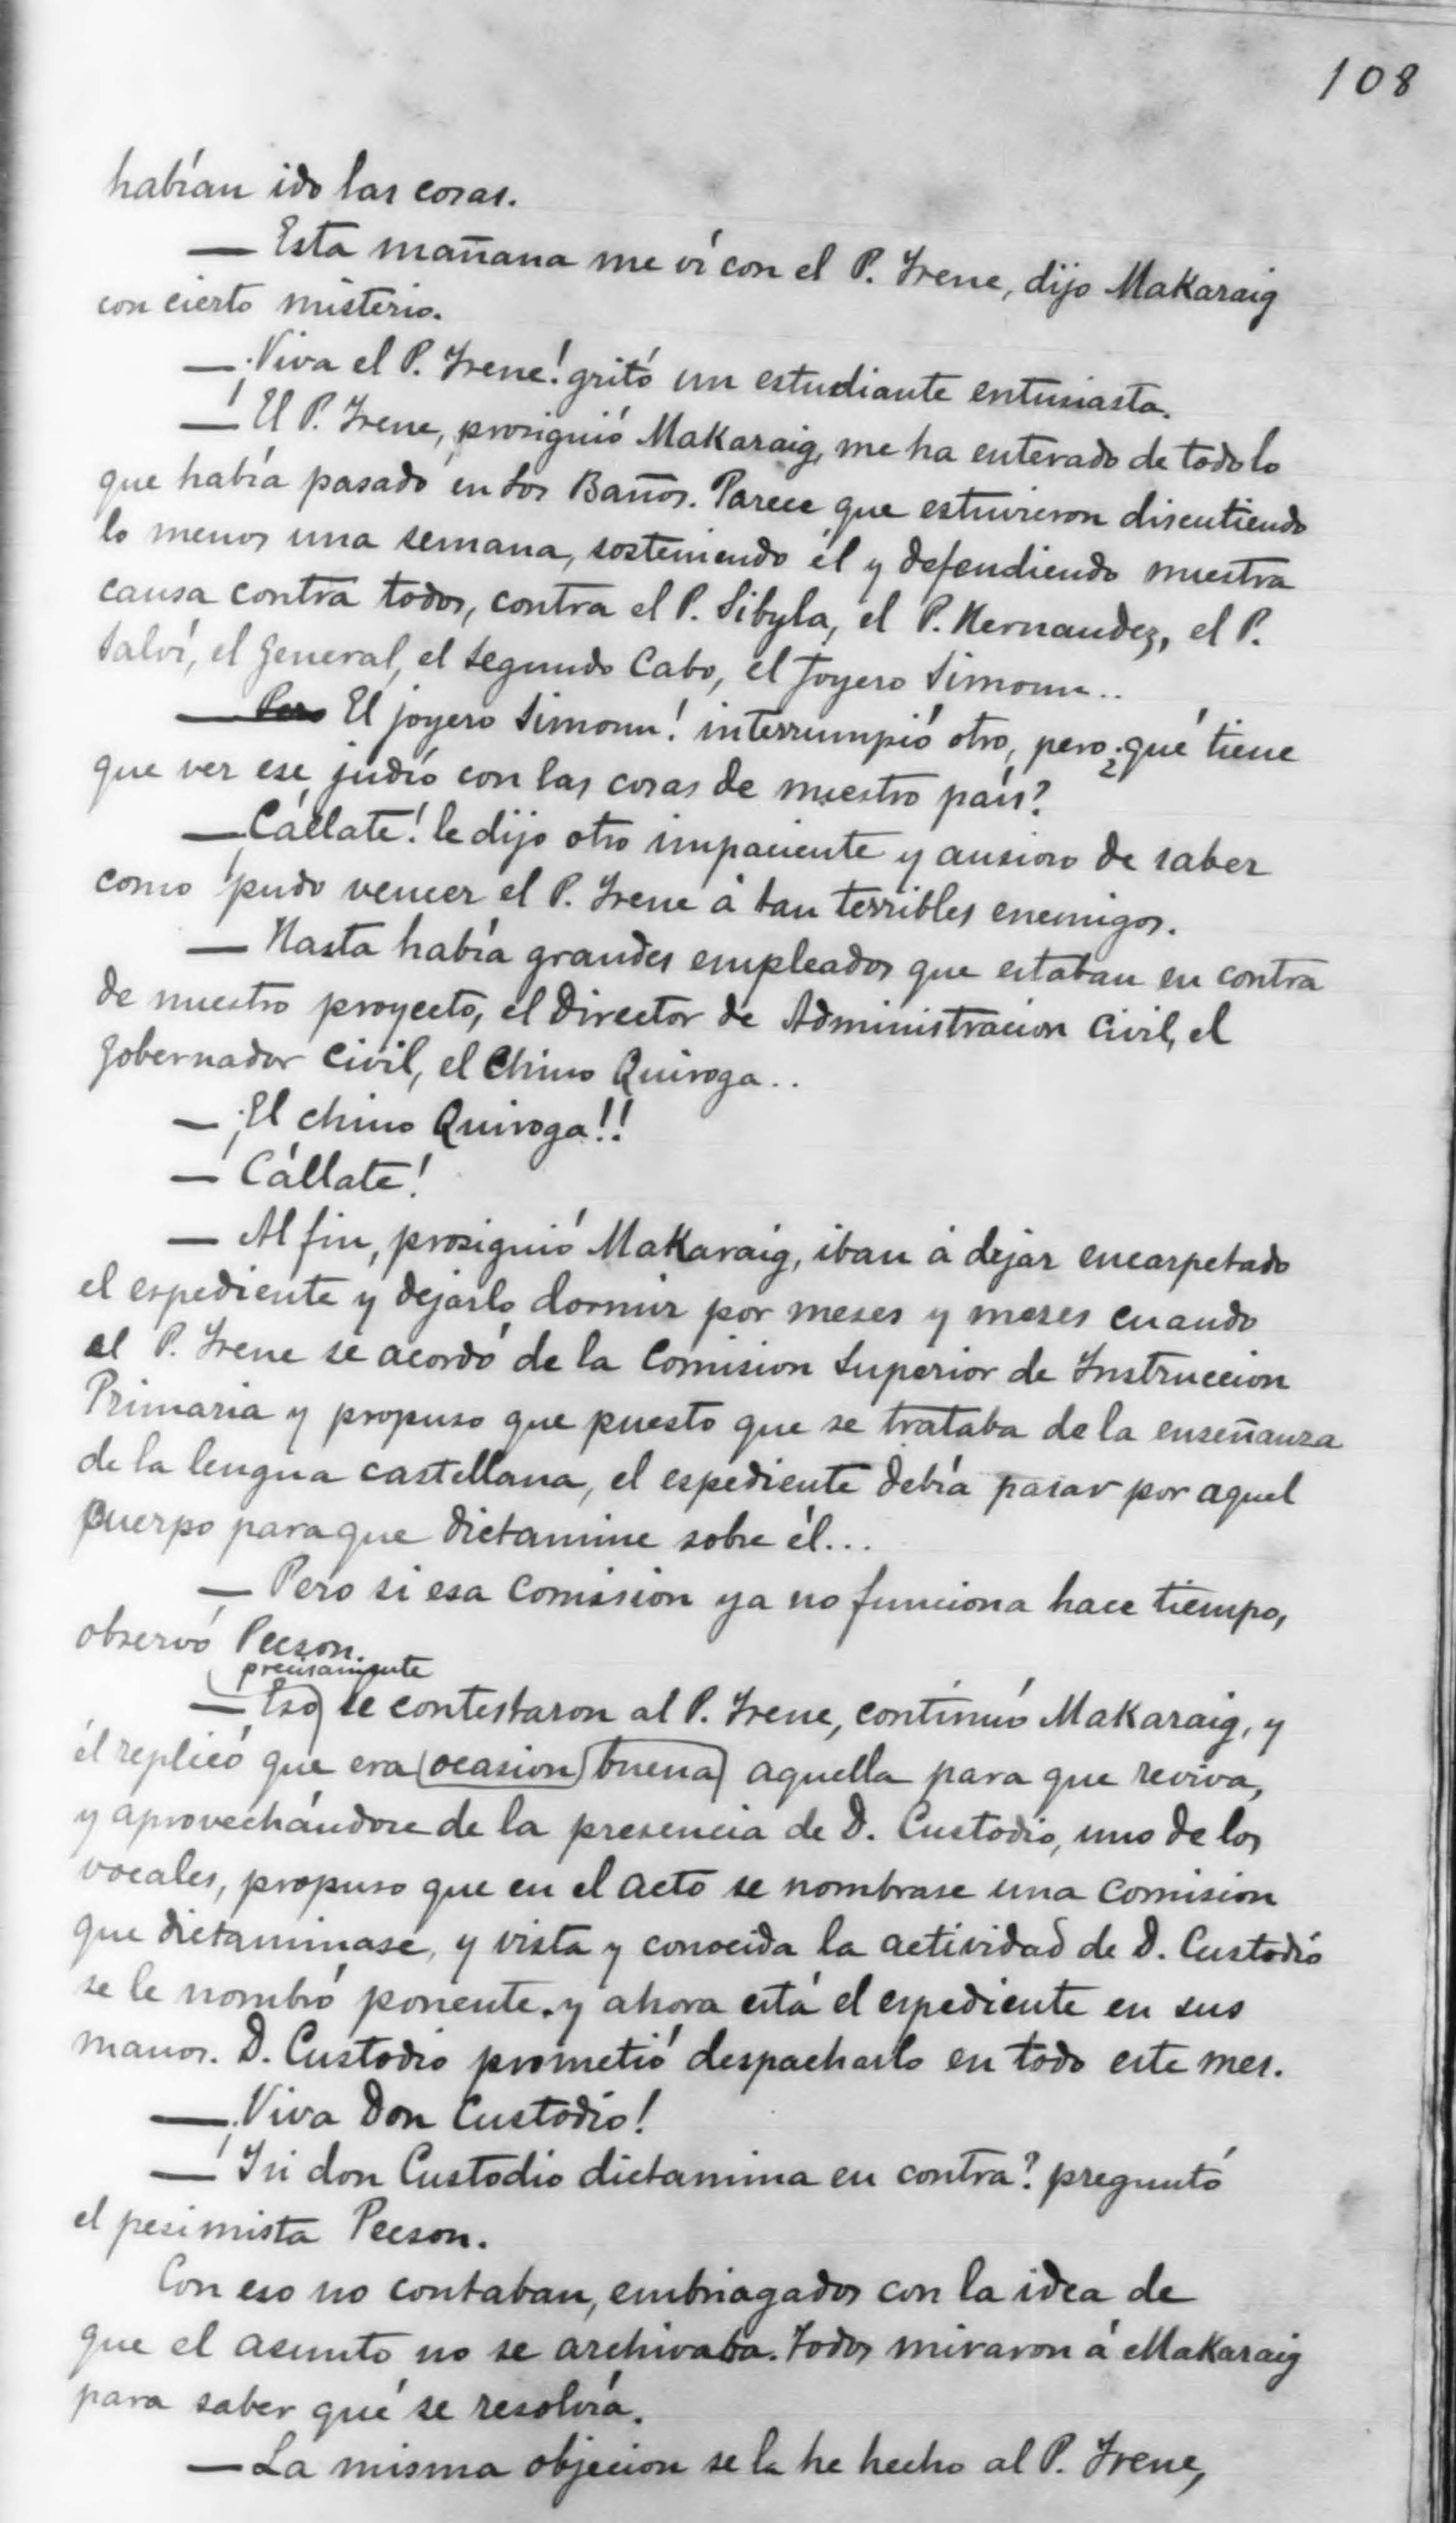 108
habían ido las cosas.
— Esta mañana me ví con el P. Irene, dijo Makaraig
con cierto misterio.
— ¡Viva el P. Irene! gritó un estudiante entusiasta.
— El P. Irene, prosiguió Makaraig, me ha enterado de todo lo
que había pasado en Los Baños. Parece que estuvieron discutiendo
lo menos una semana, sosteniendo él y defendiendo nuestra
causa contra todos, contra el P. Sibyla, el P. Hernandez, el P.
Salví, el General, el Segundo Cabo, el Joyero Simoun..
— Pero El joyero Simoun! interrumpió otro, pero ¿qué tiene
que ver ese judío con las cosas de nuestro país?
— ¡Cállate! le dijo otro impaciente y ansioso de saber
como pudo vencer el P. Irene á tan terribles enemigos.
— Hasta había grandes empleados que estaban en contra
de nuestro proyecto, el Director de Administracion Civil, el
Gobernador Civil, el Chino Quiroga..
— ¡El chino Quiroga!!
— Cállate!
— Al fin, prosiguió Makaraig, iban á dejar encarpetado
el espediente y dejarlo dormir por meses y meses cuando
el P. Irene se acordó de la Comision Superior de Instruccion
Primaria y propuso que puesto que se trataba de la enseñanza
de la lengua castellana, el espediente debía pasar por aquel
Cuerpo para que dictamine sobre él...
— Pero si esa Comision ya no funciona hace tiempo,
observó Pecson.
precisamente
— Eso le contestaron al P. Irene, continuó Makaraig, y
él replicó que era ocasion buena aquella para que reviva,
y aprovechándose de la presencia de D. Custodio, uno de los
vocales, propuso que en el acto se nombrase una comision
que dictaminase, y vista y conocida la actividad de D. Custodio
se le nombró ponente. y ahora está el espediente en sus
manos. D. Custodio prometió despacharlo en todo este mes.
— ¡Viva Don Custodio!
— Y si don Custodio dictamina en contra? preguntó
el pesimista Pecson.
Con eso no contaban, embriagados con la idea de
que el asunto no se archivaba. Todos miraron á Makaraig
para saber qué se resolvía.
— La misma objecion se la he hecho al P. Irene,